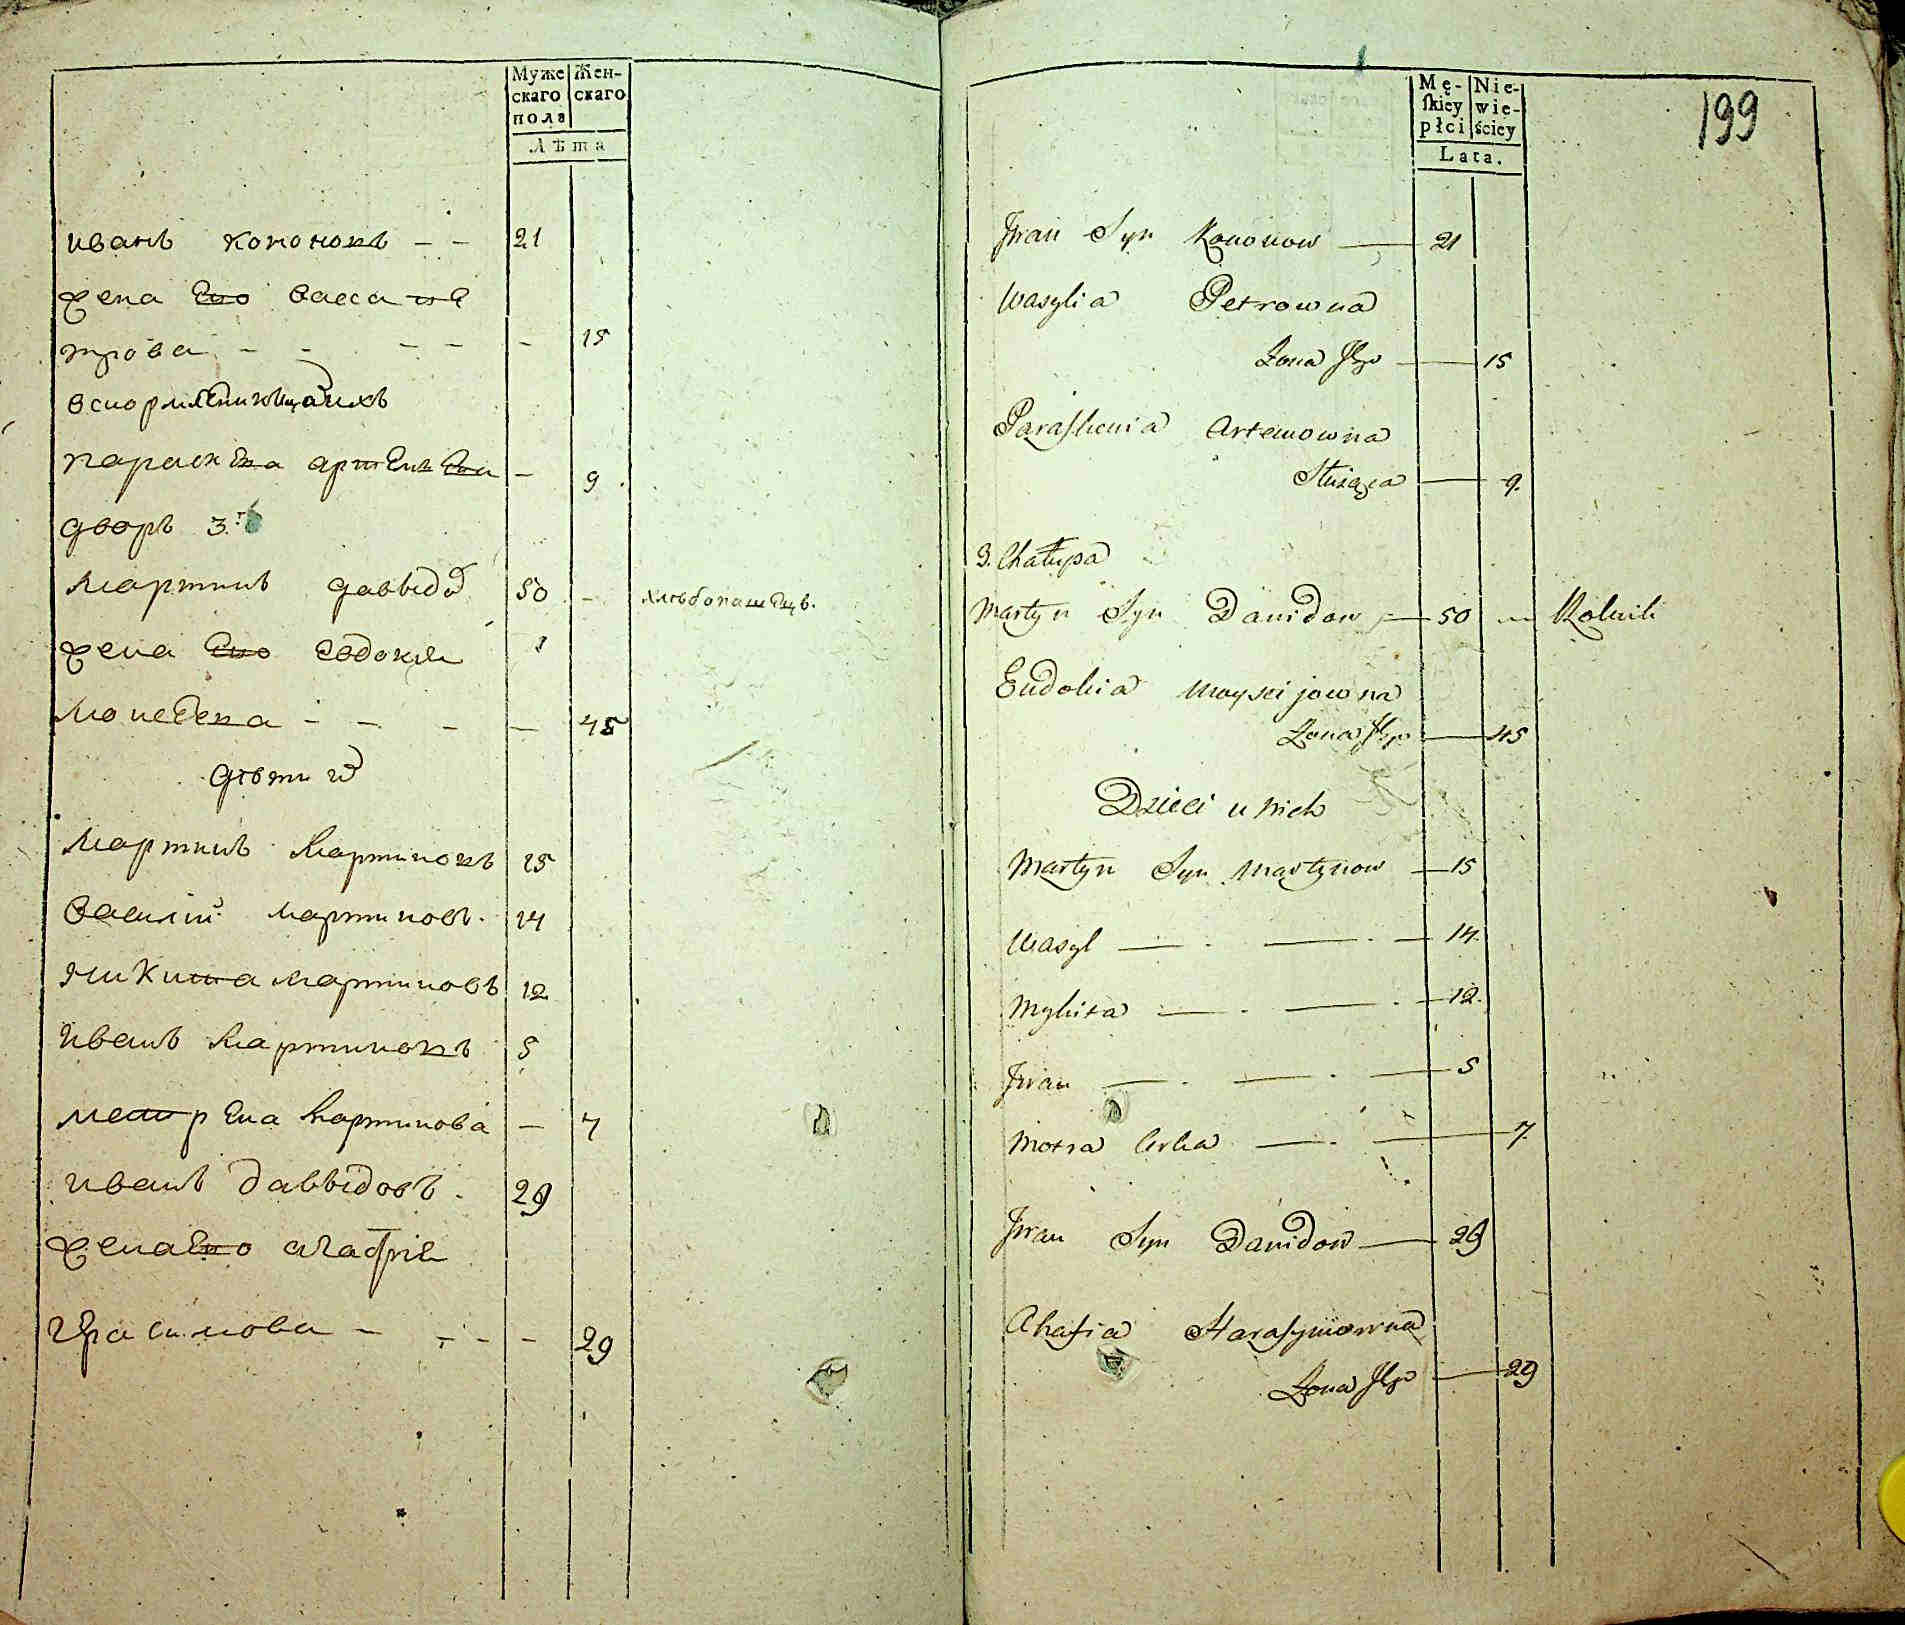 Муже Жен-
скаго скаго
пола
Лѣта
иванъ кононовъ - - 21
жена Его васса пе
трова - - - - - 15
вскормленница ихъ
параскева артемьева - 9
дворъ 3й
мартинъ давыдо 50 - хлѣбопашецъ.
жена Его евдокия
мопсеева - - - - 45
дѣти их
мартинъ мартиновъ 15
василий мартиновъ. 14
никита мартиновъ 12
иванъ мартиновъ 5
мотрена мартинова - 7
иванъ давыдовъ. 29
жена Его агафия
герасимова - - - - 29
199
Mę- Nie-
ſkiey wie-
płci ściey
Lata.
Jwan Syn Kononow 21
Wasylia Petrowna
Zona Jego 15
Paraſkewia Artemowna
Służąca 9.
3. Chałupa
Martyn Syn Dawidow 50 Rolnik
Eudokia Moyseijowna
Zona Jego 45
Dzieci u nich
Martyn Syn Martynow 15
Wasyl 14.
Mykita 12.
Jwan 5
Motra Corka 7.
Jwan Syn Dawidow 29
Ahafia Haraſymowna
Zona Jego 29